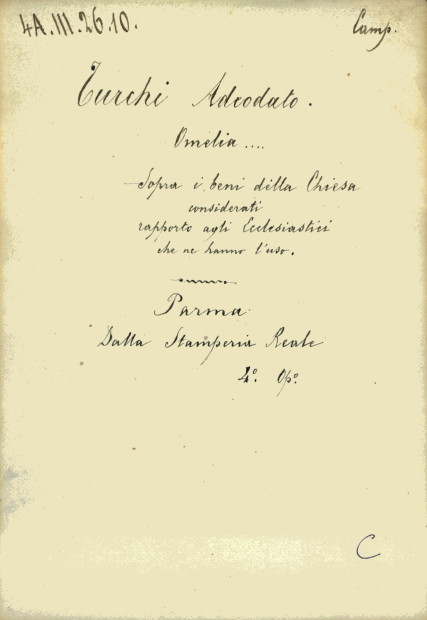 4A.III.26.10.
Camp.
Turchi Adeodato.
Omelia ....
Sopra i beni della Chiesa
considerati
rapporto agli Ecclesiastici
che ne hanno l'uso.
Parma
Dalla Stamperia Reale
4º. Opº.
C